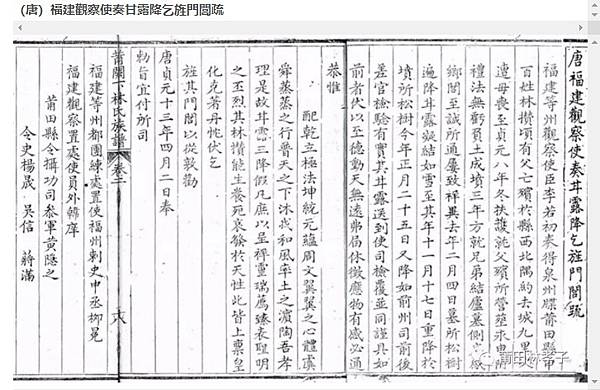 (唐) 福建觀察使奏甘露降乞旌門閭疏
唐福建觀察使奏甘露降乞旌門閭疏
福建等州觀察使臣李若初奏得泉州牒莆田縣申
百姓林攅頃有父亡殯於縣西北隅約去城九里
遭母喪至貞元八年冬扶護就父殯所營塋
禮法無虧負土成墳三年方就兄弟結廬墓側哀
鄉閭至誠所通屢致祥異去年二月四日墓所松樹
遍降甘露凝結如雪至其年十一月十七日重降於
墳所松樹今年正月二十五日又降如前州司前後
差官檢驗有實其甘露送到使司檢覆並同謹具如
前者伏以至德動天無遠弗屆休徵應物有感必通
恭惟
配乾立極法坤統元蘊周文翼翼之心體虞
舜蒸蒸之行普天之下沐我和風率土之濱陶吾孝
理是故甘露三降假凡庶以呈祥靈瑞薦臻表聖明
之丕烈其林攅能生養死哀發於天性此皆上稟至
化克著丹忱伏乞
旌其門閭以從敦勸
勅旨宜付所司
唐貞元十三年四月二日奉
莆關下林氏族譜 卷二 十八
福建等州都團練處置使福州剌史申丞柳冕
福建觀察置處使員外韓庠
莆田縣令攝功司參軍黃隱之
令史楊晟 吳信 蔣滿